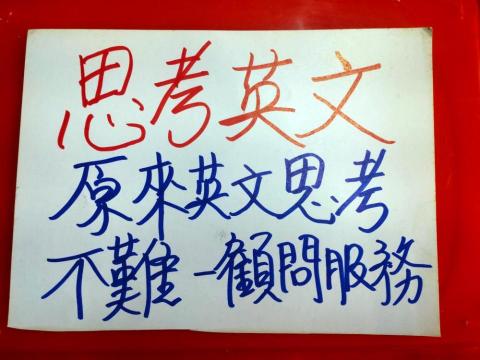 思考英文
原來英文思考
不難-顧問服務